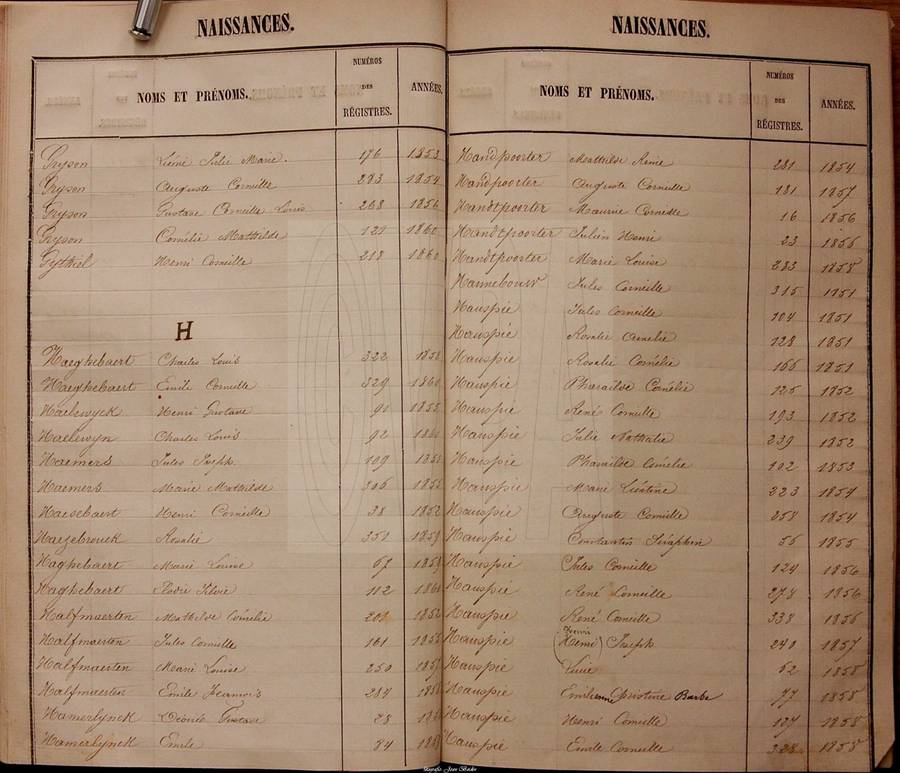 NAISSANCES.
NOMS ET PRÉNOMS. NUMÉROS DES RÉGISTRES. ANNÉES.
Gryson Julie Marie. 176 1853
Gryson Auguste Corneille 283 1854
Gryson Gustave Corneille Louis 268 1856
Gryson Cornélie Mathilde 1860
Gythiel Henri Corneille 218 1860
H
Haeghebaert Charles Louis 322 1858
Haeghebaert Emile Corneille 329 1860
Haelewyck Henri Gustave 91
Haelewyn Charles Louis 92
Haemers Jules Joseph 109
Haemers Marie Mathilde 306
Haesebaert Henri Corneille 38 1852
Haezebrouck Rosalie 351 1859
Haghebaert Marie Louise 67
Haghebaert Elodie Silvie 112
Halfmaerten Mathilde Cornélie 1852
Halfmaerten Jules Corneille 161
Halfmaerten Marie Louise 250
Halfmaerten Emile François 284
Hamerlynck Léonie Gustave 28
Hamerlynck Emile 84
NAISSANCES.
NOMS ET PRÉNOMS. NUMÉROS DES RÉGISTRES. ANNÉES.
Handpoorter Mathilde Reine 281 1854
Handpoorter Auguste Corneille 181 1857
Handtpoorter Maurice Corneille 16 1856
Handtpoorter Julien Henri 23 1856
Handtpoorter Marie Louise 283 1858
Hannebouw Jules Corneille 315 1851
Hauspie Jules Corneille 104 1851
Hauspie Rosalie Amelie 128 1851
Hauspie Rosalie Cornélie 166 1851
Hauspie Pharailde Cornélie 125 1852
Hauspie René Corneille 193 1852
Hauspie Julie Nathalie 239 1852
Hauspie Pharailde Cornélie 102 1853
Hauspie Marie Léontine 223 1854
Hauspie Auguste Corneille 258 1854
Hauspie Constantin Séraphin 56 1855
Hauspie Jules Corneille 124 1856
Hauspie René Corneille 278 1856
Hauspie René Corneille 338 1856
Hauspie Henri Joseph 240 1857
Hauspie 52 1858
Hauspie Emilienne Christine Barbe 77 1858
Hauspie Henri Corneille 127 1858
Hauspie Emile Corneille 328 1858